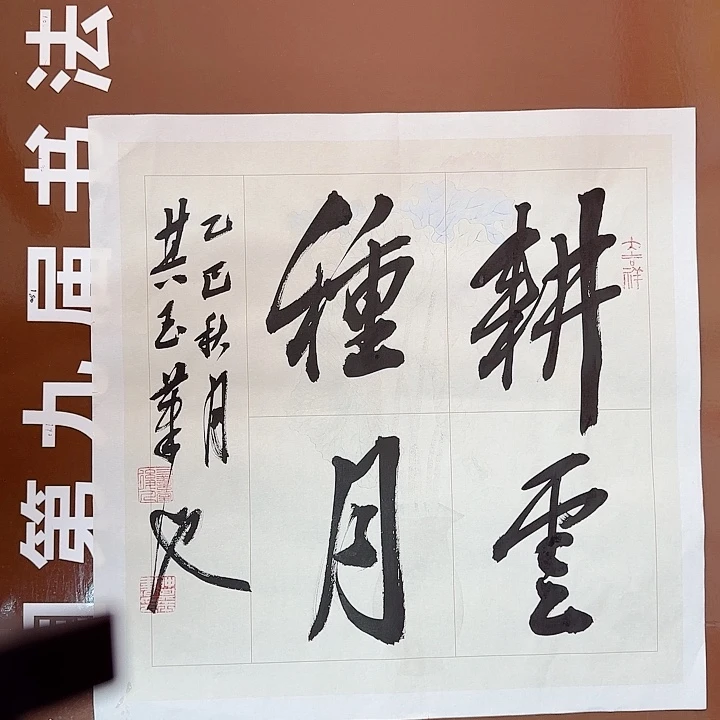 耕雲
種月
乙巳秋月
其玉筆也
大吉祥
第九届书法